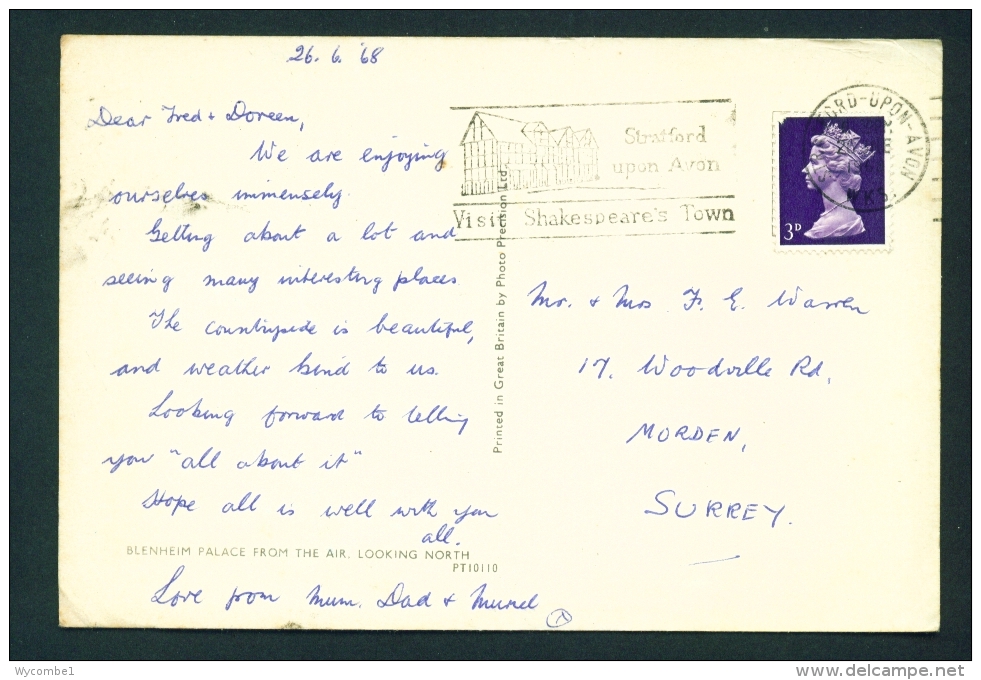 26. 6. '68
Dear Fred + Doreen,
We are enjoying
ourselves immensely.
Getting about a lot and
seeing many interesting places
The countryside is beautiful,
and weather kind to us.
Looking forward to telling
you "all about it"
Hope all is well with you
all.
BLENHEIM PALACE FROM THE AIR, LOOKING NORTH
PT10110
Love from Mum, Dad + Muriel
Printed in Great Britain by Photo Precision Ltd.
Stratford
upon Avon
Visit Shakespeare's Town
FORD-UPON-AVON
3D
Mr. + Mrs F. E. Warren
17. Woodville Rd,
MORDEN,
SURREY.
Wycombe1